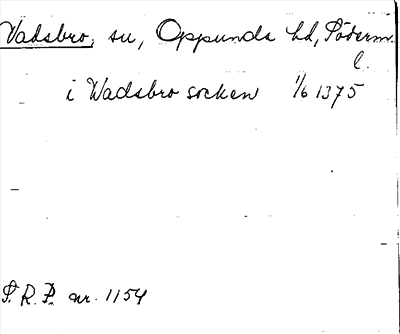 Vadsbro, sn, Oppunda hd, Söderm.
l.
i Wadsbro socken 1/6 1375
S. R. P. nr. 1154